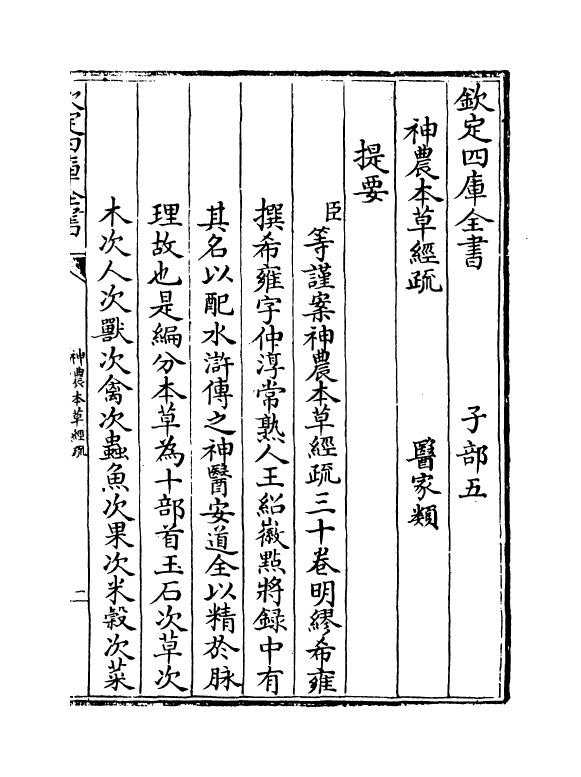 欽定四庫全書　子部五
神農本草經疏　醫家類
提要
臣等謹案神農本草經疏三十卷明繆希雍
撰希雍字仲淳常熟人王紹徽㸃將録中有
其名以配水滸傳之神醫安道全以精於脉
理故也是編分本草為十部首玉石次草次
木次人次獸次禽次蟲魚次果次米榖次菜
欽定四庫全書
神農本草經疏
二